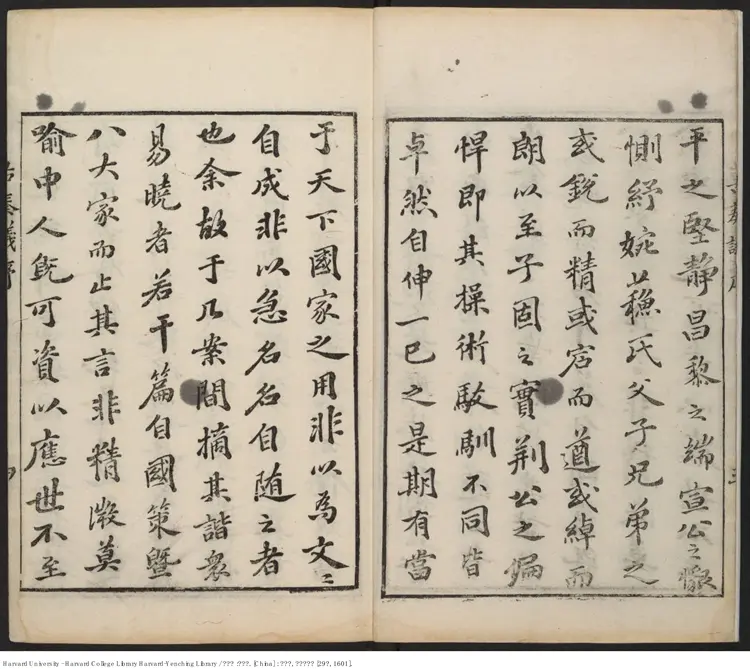 平之堅靜昌黎之端宣公之懇
惻紆婉蘇氏父子兄弟之
或銳而精或宕而遒或綽而
朗以至子固之實荆公之偏
悍即其操術駁馴不同皆
卓然自伸一已之是期有當
于天下國家之用非以為文二
自成非以急名名自随之者
也余故于几案間摘其諧衆
易曉者若干篇自國策暨
八大家而止其言非精微莫
喻中人旣可資以應世不至
Harvard University - Harvard College Library Harvard-Yenching Library / ??? : ???, [China] : ???, ????? [29?, 1601].